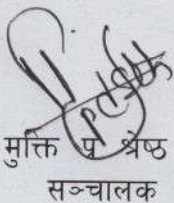 मुक्ति प्र श्रेष्ठ
सञ्चालक